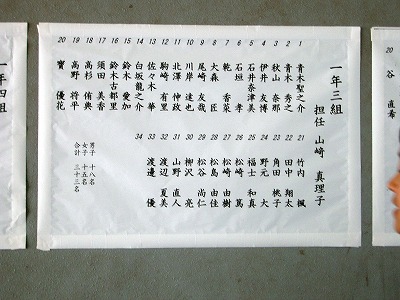 一年三組
担任 山崎 真理子
1 青木聖之介
2 青木 秀之
3 秋山 奈那
4 伊井 友博
5 石井奈津美
6 石垣 孝
7 乾 香菜
8 大森 匠
9 尾崎 友哉
10 川岸 達也
11 北澤 伸政
12 駒崎 有里
13 佐々木 華
14 白坂龍之介
15 鈴木 愛加
16 鈴木古都里
17 須田 美香
18 高杉 侑典
19 高野 将平
20 寶 優花
21 竹内 楓
22 田中 翔太
23 角田 桃子
24 野元 大
25 福士 和真
26 松崎 篤
27 松崎 由樹
28 松島 由佳
29 松谷 尚仁
30 柳沢 亮
31 山野 直人
32 渡辺 夏美
33 渡邉 優
34
男子 十八名
女子 十五名
合計 三十三名
一年四組
20
谷 直希